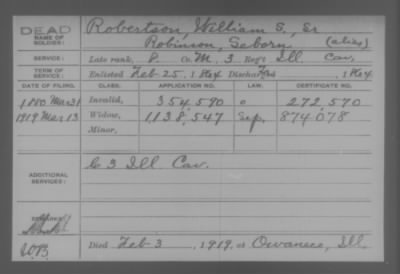 DEAD
NAME OF SOLDIER:
Robertson, William S., Sr
Robinson, Seborn (alias)
SERVICE:
Late rank, P. Co. M. 3 Reg't Ill. Cav.
TERM OF SERVICE:
Enlisted Feb 25, 1864 Discharged, 186
DATE OF FILING.
CLASS.
APPLICATION NO.
LAW.
CERTIFICATE NO.
1880 Mar 31
Invalid,
354,590
272,570
1919 Mar 13
Widow,
1138,547
Sep.
874,078
Minor,
ADDITIONAL SERVICES:
C 3 Ill. Cav.
REMARKS:
Died Feb 3, 1919, at Owaneco, Ill.